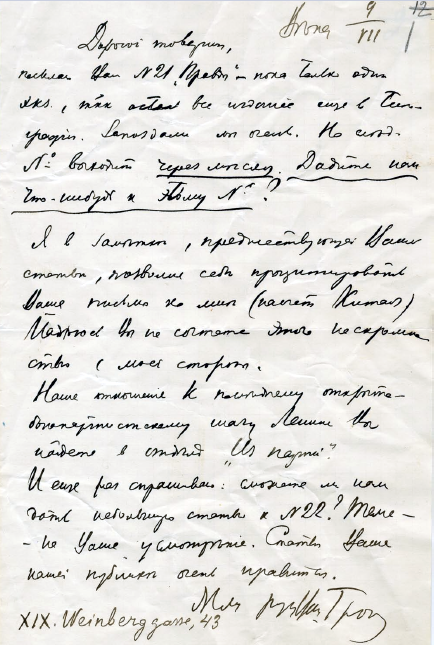 Вѣна 9/VII
12
Дорогой товарищ,
посылаю Вам №21 „Правды“ – пока только один
экз., так остал все издание еще в Тип-
графіи. Запоздали мы очень. Но след.
№ выходит через мѣсяц. Дадите нам
что-нибудь к этому №?
Я в замѣтке, предшествующей Вашей
статьи, позволил себѣ процитировать
Ваше письмо ко мнѣ (насчет Китая)
Надѣюсь Вы не сочтете этого нескромно
ства с моей стороны.
Наше отношеніе к послѣднему открыто-
шагу Ленина Вы
найдете в отдѣлѣ „Из партіи“.
И еще раз спрашиваю: сможете ли нам
дать небольшую статью к №22? Тема –
– по Ваше усмотрѣніе. Статьи Ваши
нашей публикѣ очень нравятся.
руку Троц
XIX. Weinberggasse, 43